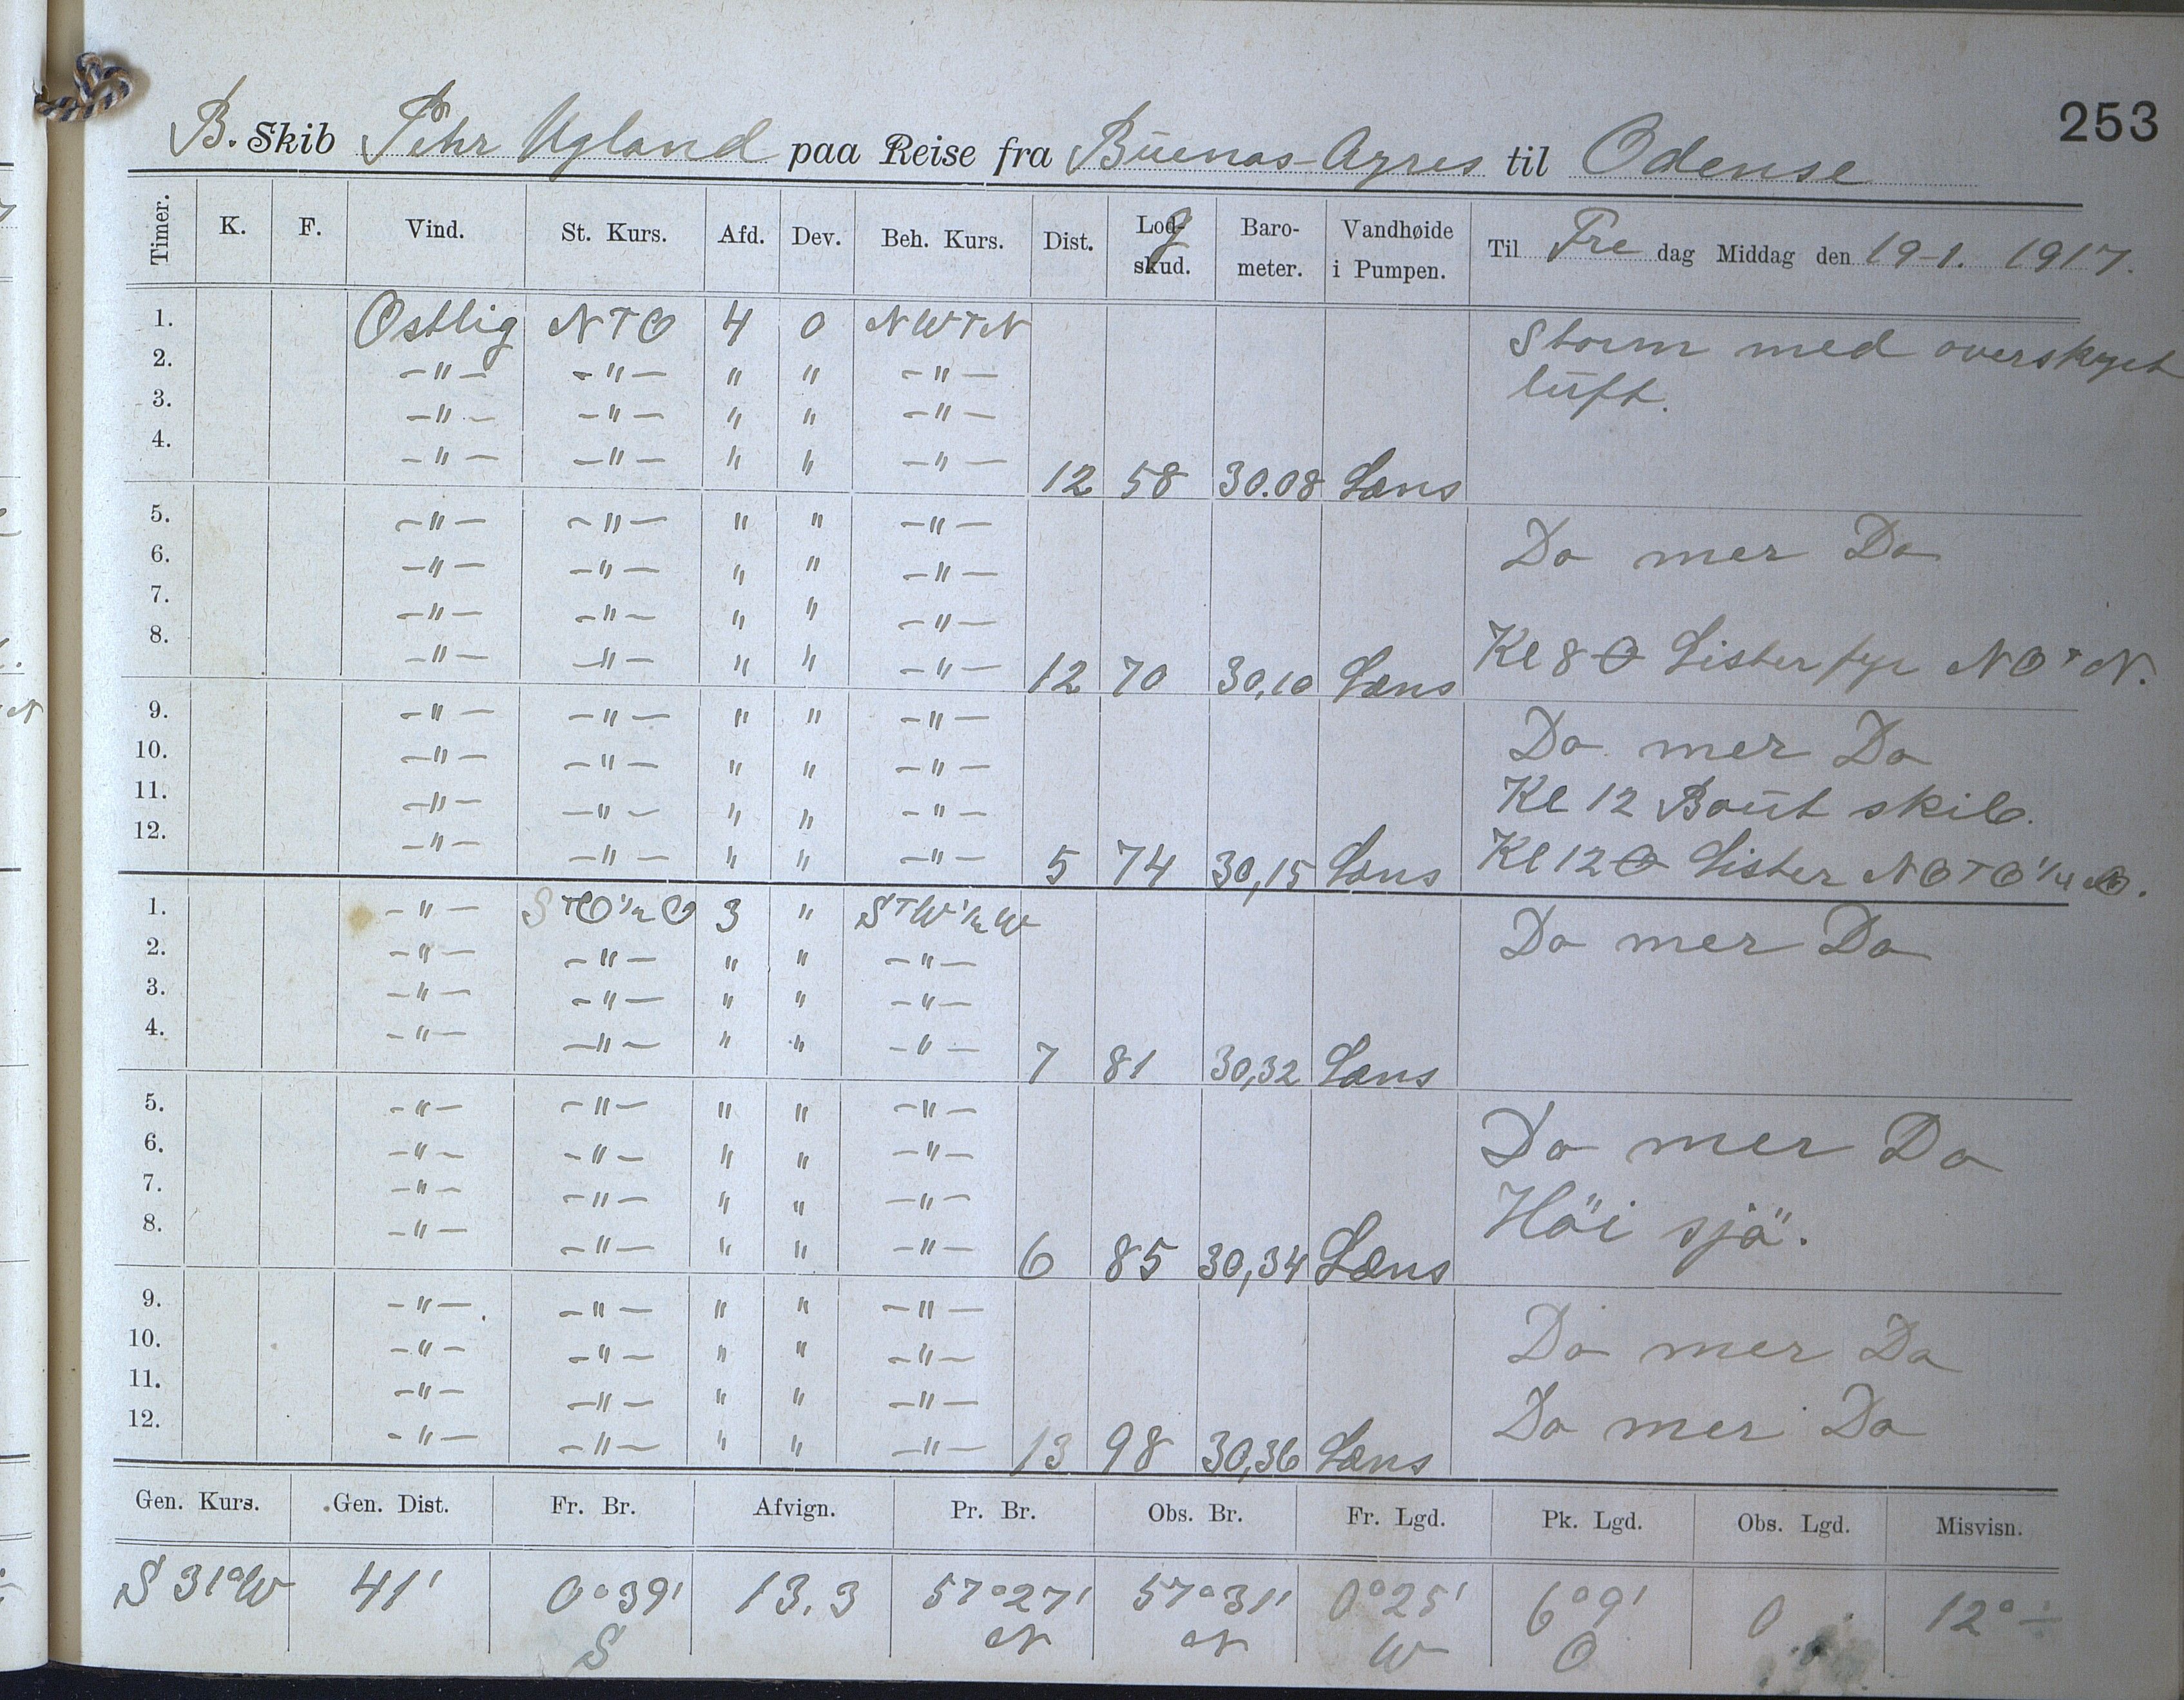 253
B. Skib Pehr Ugland paa Reise fra Buenas-Ayres til Odense
Timer. K. F. Vind. St. Kurs. Afd. Dev. Beh. Kurs. Dist. Log-skud. Baro-meter. Vandhøide i Pumpen. Til Fre dag Middag den 19-1. 1917.
1. Ostlig NTO 4 0 NWTN Storm med overskyet
2. -"- -"- " " -"- luft.
3. -"- -"- " " -"-
4. -"- -"- " " -"- 12 58 30.08 Læns
5. -"- -"- " " -"- Do mer Do
6. -"- -"- " " -"-
7. -"- -"- " " -"-
8. -"- -"- " " -"- 12 70 30,10 Læns Kl 8 Lister fyr NOTN.
9. -"- -"- " " -"- Do mer Do
10. -"- -"- " " -"-
11. -"- -"- " " -"- Kl 12 Baut skib.
12. -"- -"- " " -"- 5 74 30,15 Læns Kl 12 Lister NOTO 1/4
1. -"- STO 1/2 O 3 " STW 1/2 W Do mer Do
2. -"- -"- " " -"-
3. -"- -"- " " -"-
4. -"- -"- " " -"- 7 81 30,32 Læns
5. -"- -"- " " -"- Do mer Do
6. -"- -"- " " -"-
7. -"- -"- " " -"- Höi sjö.
8. -"- -"- " " -"- 6 85 30,34 Læns
9. -"- -"- " " -"- Do mer Do
10. -"- -"- " " -"-
11. -"- -"- " " -"- Do mer Do
12. -"- -"- " " -"- 13 98 30,36 Læns
Gen. Kurs. Gen. Dist. Fr. Br. Afvign. Pr. Br. Obs. Br. Fr. Lgd. Pk. Lgd. Obs. Lgd. Misvisn.
S 31°W 41' 0°39' 13.3 57°27' 57°31' 0°25' 6°9' 0 12° ÷
S N N W O